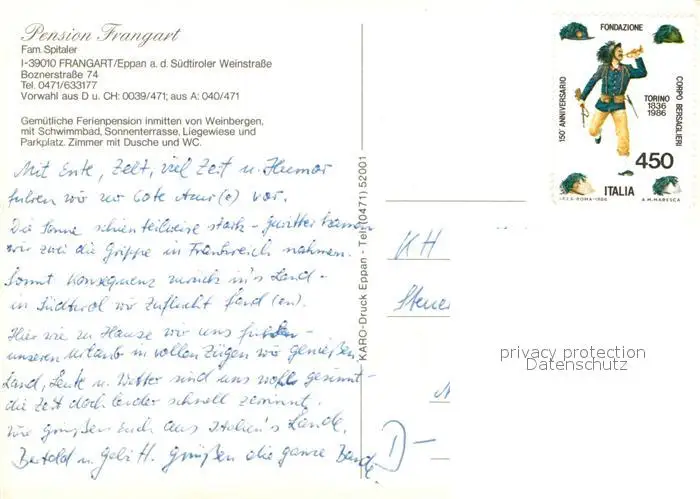 Pension Frangart
Fam. Spitaler
I-39010 FRANGART/Eppan a. d. Südtiroler Weinstraße
Boznerstraße 74
Tel. 0471/633177
Vorwahl aus D u. CH: 0039/471; aus A: 040/471
Gemütliche Ferienpension inmitten von Weinbergen,
mit Schwimmbad, Sonnenterrasse, Liegewiese und
Parkplatz. Zimmer mit Dusche und WC.
Mit Ente, Zelt, viel Zeit u. Humor
fuhren wir zur Cote Azur(e) vor.
Die Sonne schien teilweise stark -
wir zwei die Grippe in Frankreich nahmen.
Somit Konsequenz zurück in's Land -
in Südtirol wir Zuflucht fand(en).
Hier wie zu Hause wir uns fühlen -
unseren Urlaub in vollen Zügen wir genießen
Land, Leute u. Wetter sind uns wohl gesinnt -
die Zeit doch leider schnell zerrinnt.
Wir grüßen Euch aus Italien's Lande,
Bertold u. Gabi H. grüßen die ganze Bande.
KARO-Druck Eppan - Tel. (0471) 52001
FONDAZIONE
150° ANNIVERSARIO
CORPO BERSAGLIERI
TORINO
1836
1986
450
ITALIA
I.P.Z.S.-ROMA-1986
A.M. MARESCA
KH
Steue
D-
privacy protection
Datenschutz